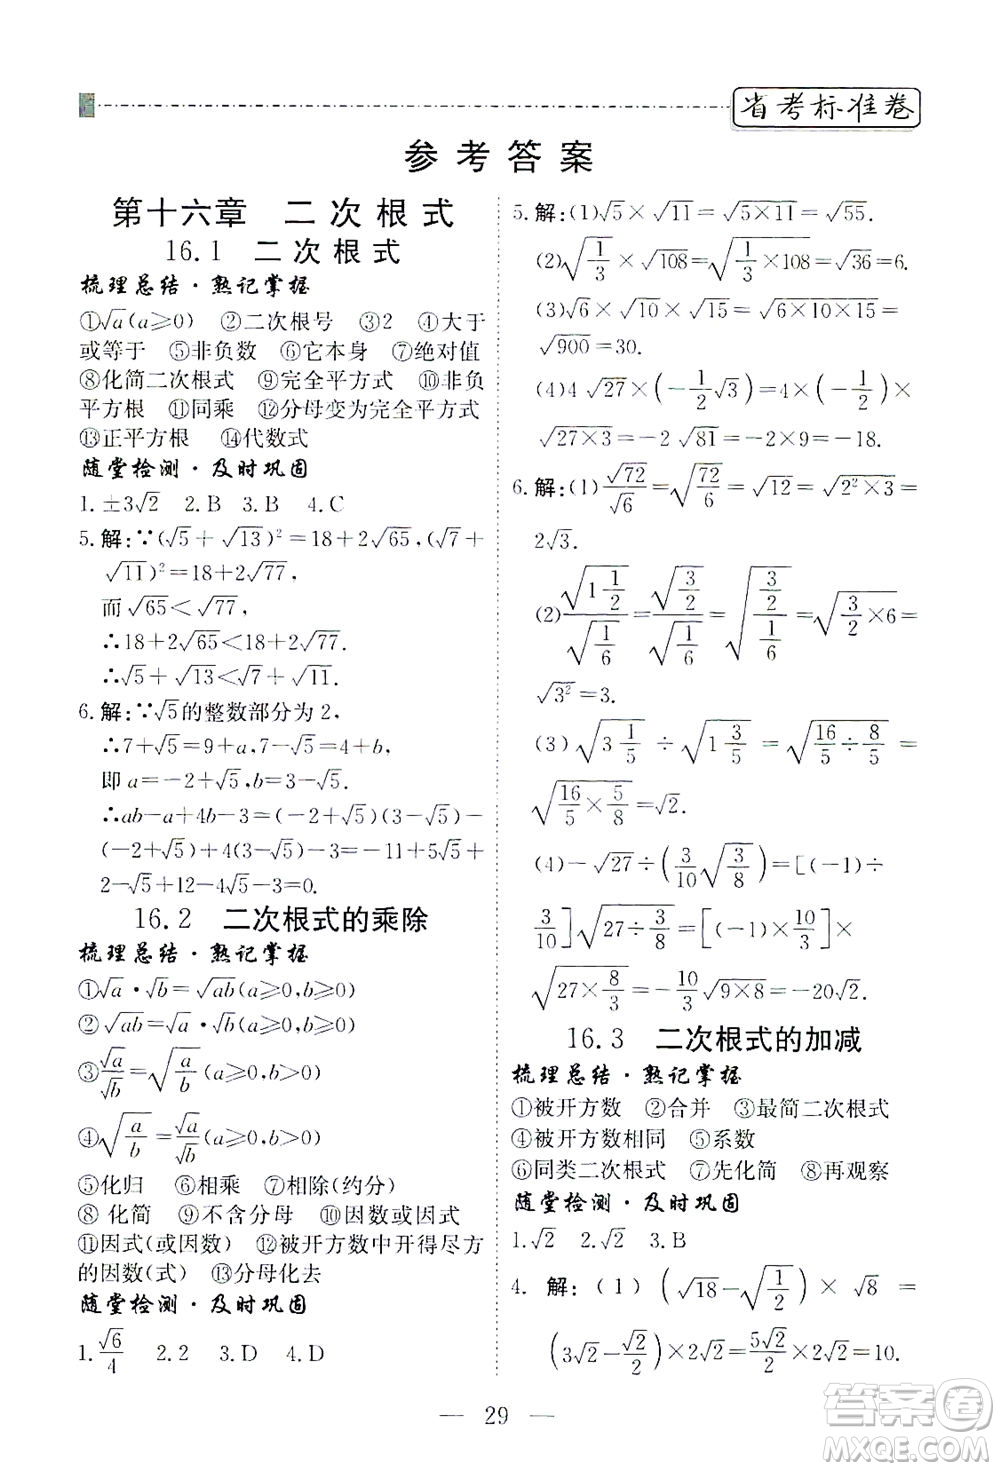 省考标准卷
参考答案
第十六章 二次根式
16.1 二次根式
梳理总结·熟记掌握
①√a(a≥0) ②二次根号 ③2 ④大于
或等于 ⑤非负数 ⑥它本身 ⑦绝对值
⑧化简二次根式 ⑨完全平方式 ⑩非负
平方根 ⑪同乘 ⑫分母变为完全平方式
⑬正平方根 ⑭代数式
随堂检测·及时巩固
1.±3√2 2.B 3.B 4.C
5.解:∵(√5+√13)²=18+2√65,(√7+
√11)²=18+2√77,
而√65<√77,
∴18+2√65<18+2√77.
∴√5+√13<√7+√11.
6.解:∵√5的整数部分为2,
∴7+√5=9+a,7-√5=4+b,
即a=-2+√5,b=3-√5.
∴ab-a+4b-3=(-2+√5)(3-√5)-
(-2+√5)+4(3-√5)-3=-11+5√5+
2-√5+12-4√5-3=0.
16.2 二次根式的乘除
梳理总结·熟记掌握
①√a·√b=√ab(a≥0,b≥0)
②√ab=√a·√b(a≥0,b≥0)
③√a/√b=√(a/b)(a≥0,b>0)
④√(a/b)=√a/√b(a≥0,b>0)
⑤化归 ⑥相乘 ⑦相除(约分)
⑧化简 ⑨不含分母 ⑩因数或因式
⑪因式(或因数) ⑫被开方数中开得尽方
的因数(式) ⑬分母化去
随堂检测·及时巩固
1.√6/4 2.2 3.D 4.D
5.解:(1)√5×√11=√(5×11)=√55.
(2)√(1/3)×√108=√(1/3×108)=√36=6.
(3)√6×√10×√15=√(6×10×15)=
√900=30.
(4)4√27×(-1/2√3)=4×(-1/2)×
√(27×3)=-2√81=-2×9=-18.
6.解:(1)√72/√6=√(72/6)=√12=√(2²×3)=
2√3.
(2)√(1 1/2)/√(1/6)=√(3/2)/√(1/6)=√((3/2)/(1/6))=√(3/2×6)=
√3²=3.
(3)√(3 1/5)÷√(1 3/5)=√(16/5÷8/5)=
√(16/5×5/8)=√2.
(4)-√27÷(3/10√(3/8))=[(-1)÷
3/10]√(27÷3/8)=[(-1)×10/3]×
√(27×8/3)=-10/3√(9×8)=-20√2.
16.3 二次根式的加减
梳理总结·熟记掌握
①被开方数 ②合并 ③最简二次根式
④被开方数相同 ⑤系数
⑥同类二次根式 ⑦先化简 ⑧再观察
随堂检测·及时巩固
1.√2 2.√2 3.B
4.解:(1)(√18-√(1/2))×√8=
(3√2-√2/2)×2√2=5√2/2×2√2=10.
— 29 —
答案卷
MXQE.COM